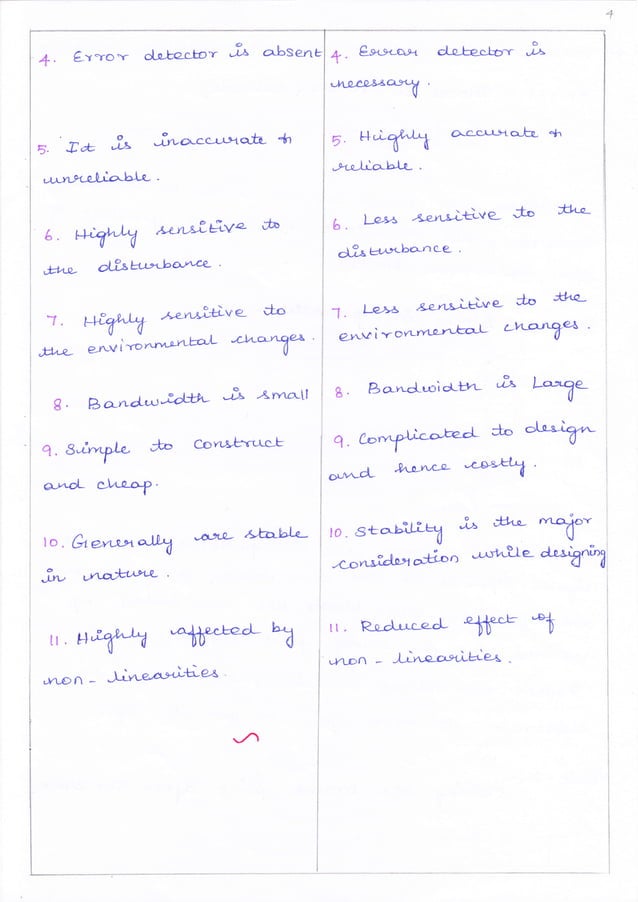 4
4. Error detector is absent
5. It is inaccurate &
unreliable.
6. Highly sensitive to
the disturbance.
7. Highly sensitive to
the environmental changes.
8. Bandwidth is small
9. Simple to construct
and cheap.
10. Generally are stable
in nature.
11. Highly affected by
non - linearities.
4. Error detector is
necessary.
5. Highly accurate &
reliable.
6. Less sensitive to the
disturbance.
7. Less sensitive to the
environmental changes.
8. Bandwidth is Large
9. Complicated to design
and hence costly.
10. Stability is the major
consideration while designing
11. Reduced effect of
non - linearities.